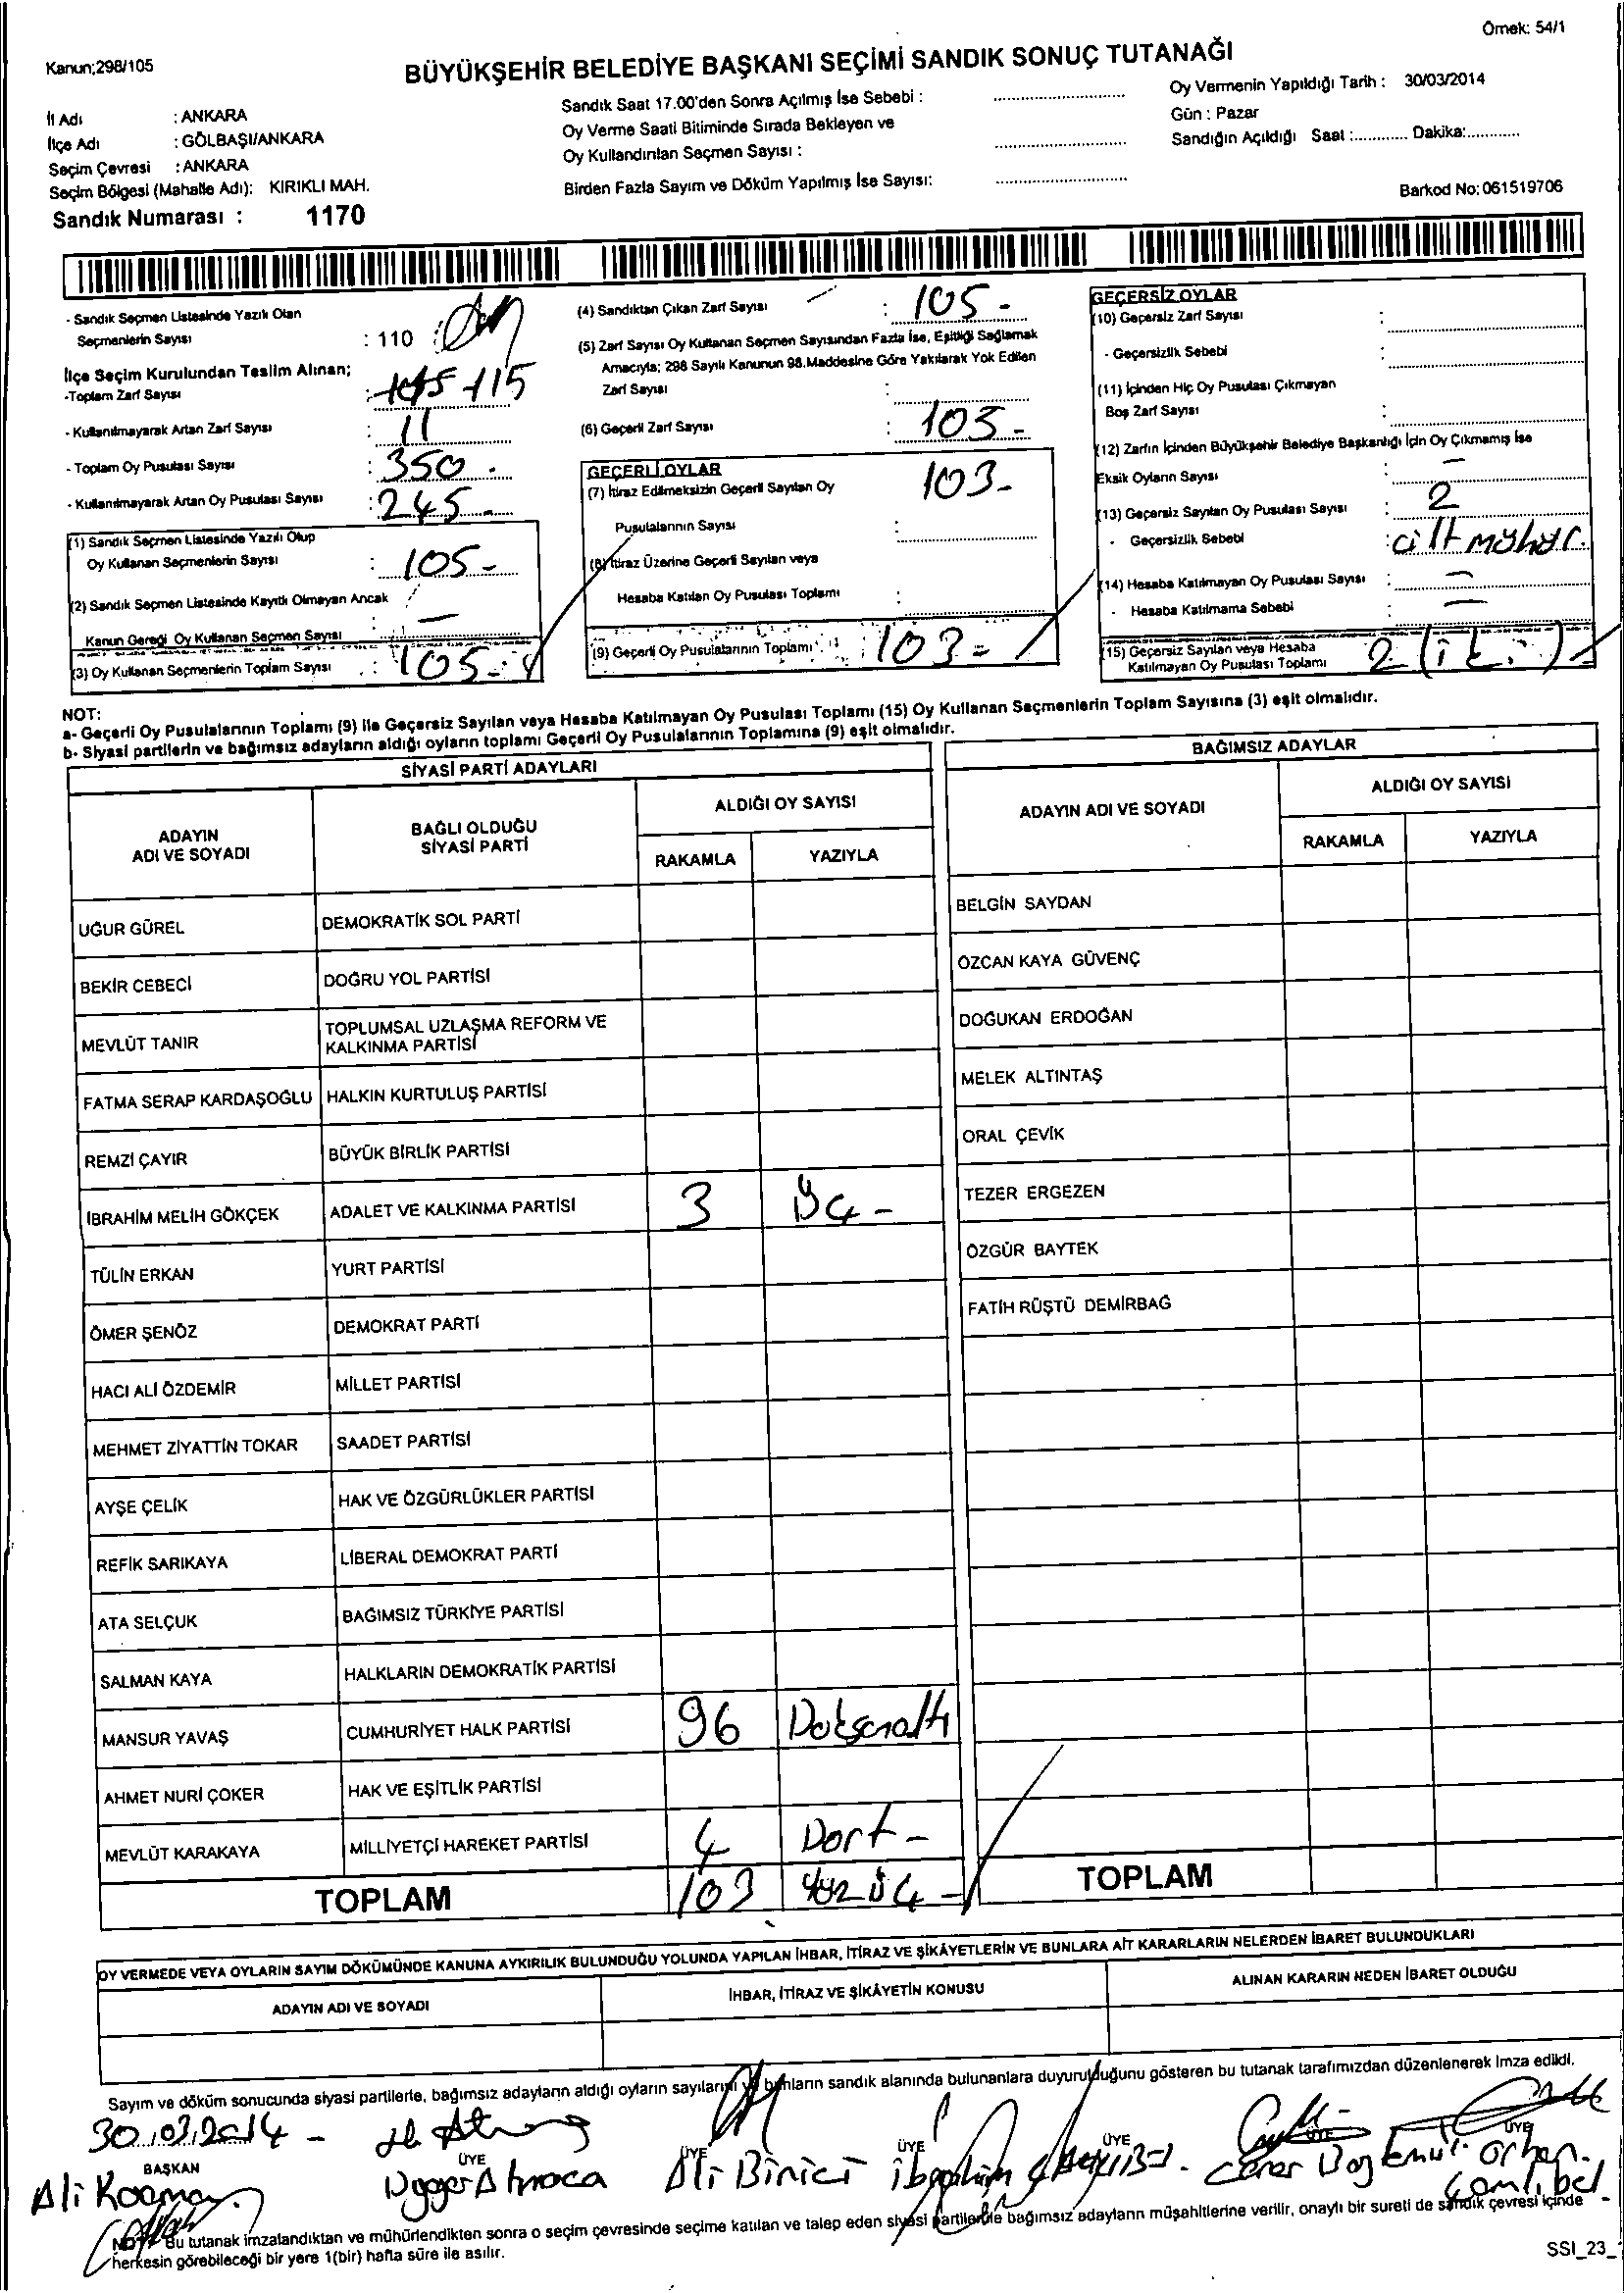 Örnek: 54/1
Kanun;298/105
BÜYÜKŞEHİR BELEDİYE BAŞKANI SEÇİMİ SANDIK SONUÇ TUTANAĞI
İl Adı : ANKARA
İlçe Adı : GÖLBAŞI/ANKARA
Seçim Çevresi : ANKARA
Seçim Bölgesi (Mahalle Adı): KIRIKLI MAH.
Sandık Numarası : 1170
Sandık Saat 17.00'den Sonra Açılmış İse Sebebi :
Oy Verme Saati Bitiminde Sırada Bekleyen ve
Oy Kullandırılan Seçmen Sayısı :
Birden Fazla Sayım ve Döküm Yapılmış İse Sayısı:
Oy Vermenin Yapıldığı Tarih : 30/03/2014
Gün : Pazar
Sandığın Açıldığı Saat :............ Dakika:............
Barkod No: 061519706
- Sandık Seçmen Listesinde Yazılı Olan
Seçmenlerin Sayısı : 110
İlçe Seçim Kurulundan Teslim Alınan;
-Toplam Zarf Sayısı : 115
- Kullanılmayarak Artan Zarf Sayısı : 11
- Toplam Oy Pusulası Sayısı : 350 -
- Kullanılmayarak Artan Oy Pusulası Sayısı : 245 -
(1) Sandık Seçmen Listesinde Yazılı Olup
Oy Kullanan Seçmenlerin Sayısı : 105 -
(2) Sandık Seçmen Listesinde Kayıtlı Olmayan Ancak
Kanun Gereği Oy Kullanan Seçmen Sayısı : —
(3) Oy Kullanan Seçmenlerin Toplam Sayısı : 105 -
(4) Sandıktan Çıkan Zarf Sayısı : 105 -
(5) Zarf Sayısı Oy Kullanan Seçmen Sayısından Fazla İse, Eşitliği Sağlamak
Amacıyla; 298 Sayılı Kanunun 98.Maddesine Göre Yakılarak Yok Edilen
Zarf Sayısı :
(6) Geçerli Zarf Sayısı : 103 -
GEÇERLİ OYLAR
(7) İtiraz Edilmeksizin Geçerli Sayılan Oy 103 -
Pusulalarının Sayısı :
(8) İtiraz Üzerine Geçerli Sayılan veya
Hesaba Katılan Oy Pusulası Toplamı :
(9) Geçerli Oy Pusulalarının Toplamı : 103 -
GEÇERSİZ OYLAR
(10) Geçersiz Zarf Sayısı :
- Geçersizlik Sebebi :
(11) İçinden Hiç Oy Pusulası Çıkmayan
Boş Zarf Sayısı :
(12) Zarfın İçinden Büyükşehir Belediye Başkanlığı İçin Oy Çıkmamış İse
Eksik Oyların Sayısı : —
(13) Geçersiz Sayılan Oy Pusulası Sayısı : 2
- Geçersizlik Sebebi : cift mühür.
(14) Hesaba Katılmayan Oy Pusulası Sayısı : —
- Hesaba Katılmama Sebebi : —
(15) Geçersiz Sayılan veya Hesaba
Katılmayan Oy Pusulası Toplamı 2 (iki)
NOT:
a- Geçerli Oy Pusulalarının Toplamı (9) ile Geçersiz Sayılan veya Hesaba Katılmayan Oy Pusulası Toplamı (15) Oy Kullanan Seçmenlerin Toplam Sayısına (3) eşit olmalıdır.
b- Siyasi partilerin ve bağımsız adayların aldığı oyların toplamı Geçerli Oy Pusulalarının Toplamına (9) eşit olmalıdır.
SİYASİ PARTİ ADAYLARI
ADAYIN ADI VE SOYADI BAĞLI OLDUĞU SİYASİ PARTİ ALDIĞI OY SAYISI
RAKAMLA YAZIYLA
UĞUR GÜREL DEMOKRATİK SOL PARTİ
BEKİR CEBECİ DOĞRU YOL PARTİSİ
MEVLÜT TANIR TOPLUMSAL UZLAŞMA REFORM VE KALKINMA PARTİSİ
FATMA SERAP KARDAŞOĞLU HALKIN KURTULUŞ PARTİSİ
REMZİ ÇAYIR BÜYÜK BİRLİK PARTİSİ
İBRAHİM MELİH GÖKÇEK ADALET VE KALKINMA PARTİSİ 3 Üç -
TÜLİN ERKAN YURT PARTİSİ
ÖMER ŞENÖZ DEMOKRAT PARTİ
HACI ALİ ÖZDEMİR MİLLET PARTİSİ
MEHMET ZİYATTİN TOKAR SAADET PARTİSİ
AYŞE ÇELİK HAK VE ÖZGÜRLÜKLER PARTİSİ
REFİK SARIKAYA LİBERAL DEMOKRAT PARTİ
ATA SELÇUK BAĞIMSIZ TÜRKİYE PARTİSİ
SALMAN KAYA HALKLARIN DEMOKRATİK PARTİSİ
MANSUR YAVAŞ CUMHURİYET HALK PARTİSİ 96 Doksanaltı
AHMET NURİ ÇOKER HAK VE EŞİTLİK PARTİSİ
MEVLÜT KARAKAYA MİLLİYETÇİ HAREKET PARTİSİ 4 Dört -
TOPLAM 103 yüzüç -
BAĞIMSIZ ADAYLAR
ADAYIN ADI VE SOYADI ALDIĞI OY SAYISI
RAKAMLA YAZIYLA
BELGİN SAYDAN
ÖZCAN KAYA GÜVENÇ
DOĞUKAN ERDOĞAN
MELEK ALTINTAŞ
ORAL ÇEVİK
TEZER ERGEZEN
ÖZGÜR BAYTEK
FATİH RÜŞTÜ DEMİRBAĞ
TOPLAM
OY VERMEDE VEYA OYLARIN SAYIM DÖKÜMÜNDE KANUNA AYKIRILIK BULUNDUĞU YOLUNDA YAPILAN İHBAR, İTİRAZ VE ŞİKÂYETLERİN VE BUNLARA AİT KARARLARIN NELERDEN İBARET BULUNDUKLARI
ADAYIN ADI VE SOYADI İHBAR, İTİRAZ VE ŞİKÂYETİN KONUSU ALINAN KARARIN NEDEN İBARET OLDUĞU
Sayım ve döküm sonucunda siyasi partilerle, bağımsız adayların aldığı oyların sayılarını ve bunların sandık alanında bulunanlara duyurulduğunu gösteren bu tutanak tarafımızdan düzenlenerek imza edildi.
30.03.2014 -
BAŞKAN ÜYE ÜYE ÜYE ÜYE ÜYE ÜYE
Ali Binici
NOT: Bu tutanak imzalandıktan ve mühürlendikten sonra o seçim çevresinde seçime katılan ve talep eden siyasi partilerle bağımsız adayların müşahitlerine verilir, onaylı bir sureti de sandık çevresi içinde
herkesin görebileceği bir yere 1(bir) hafta süre ile asılır.
SSI_23_